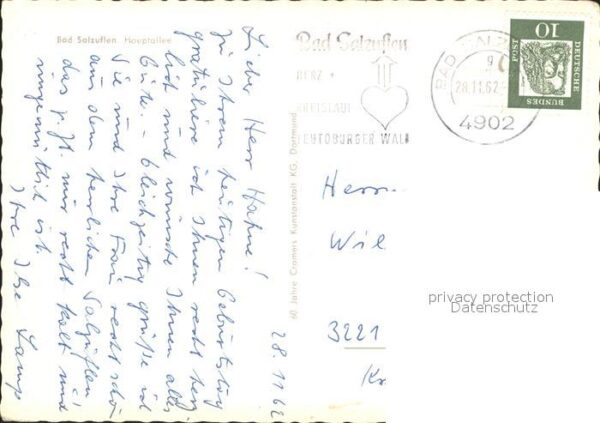 Bad Salzuflen Hauptallee
28.11.62
Lieber Herr Hahne!
Zu Ihrem heutigen Geburtstag
gratuliere ich Ihnen recht herz
lich und wünsche Ihnen alles
Gute. – Gleichzeitig grüße ich
Sie und Ihre Frau recht schön
aus dem herrlichen Salzuflen
das z. Zt. mir recht kalt und
ungemütlich ist.
Ihre Ilse
60 Jahre Cramers Kunstanstalt KG, Dortmund
Bad Salzuflen
HERZ +
KREISLAUF
TEUTOBURGER WALD
BAD SALZ
9
28.11.62
4902
10
DEUTSCHE
BUNDES
POST
Herrn
Wil
3221
Kr
privacy protection
Datenschutz